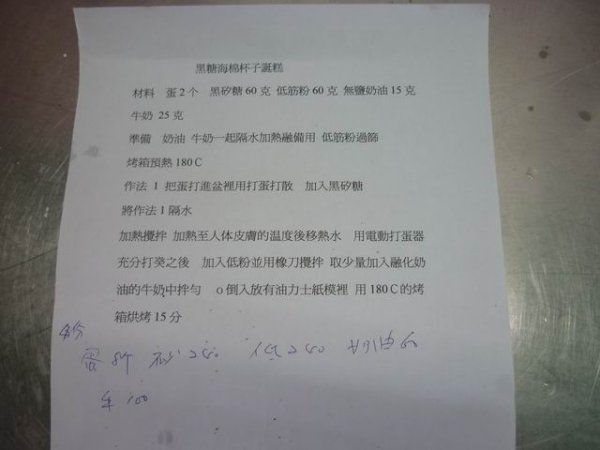 黑糖海棉杯子誕糕
材料 蛋2个 黑矽糖60克 低筋粉60克 無鹽奶油15克
牛奶 25克
準備 奶油 牛奶一起隔水加熱融備用 低筋粉過篩
烤箱預熱180C
作法 1 把蛋打進盆裡用打蛋打散 加入黑矽糖
將作法1隔水
加熱攪拌 加熱至人体皮膚的温度後移熱水 用電動打蛋器
充分打葵之後 加入低粉並用橡刀攪拌 取少量加入融化奶
油的牛奶中拌勻 o倒入放有油力士紙模裡 用180C的烤
箱烘烤15分
砂240 低240 油60
牛100